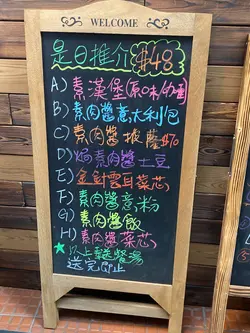 WELCOME
是日推介 $48
A) 素漢堡(原味/加喱)
B) 素肉醬意大利包
C) 素肉醬披薩$70
D) 焗素肉醬土豆
E) 金針雲耳菜芯
F) 素肉醬意粉
G) 素肉醬飯
H) 素肉醬菜芯
★以上送餐湯
送完即止